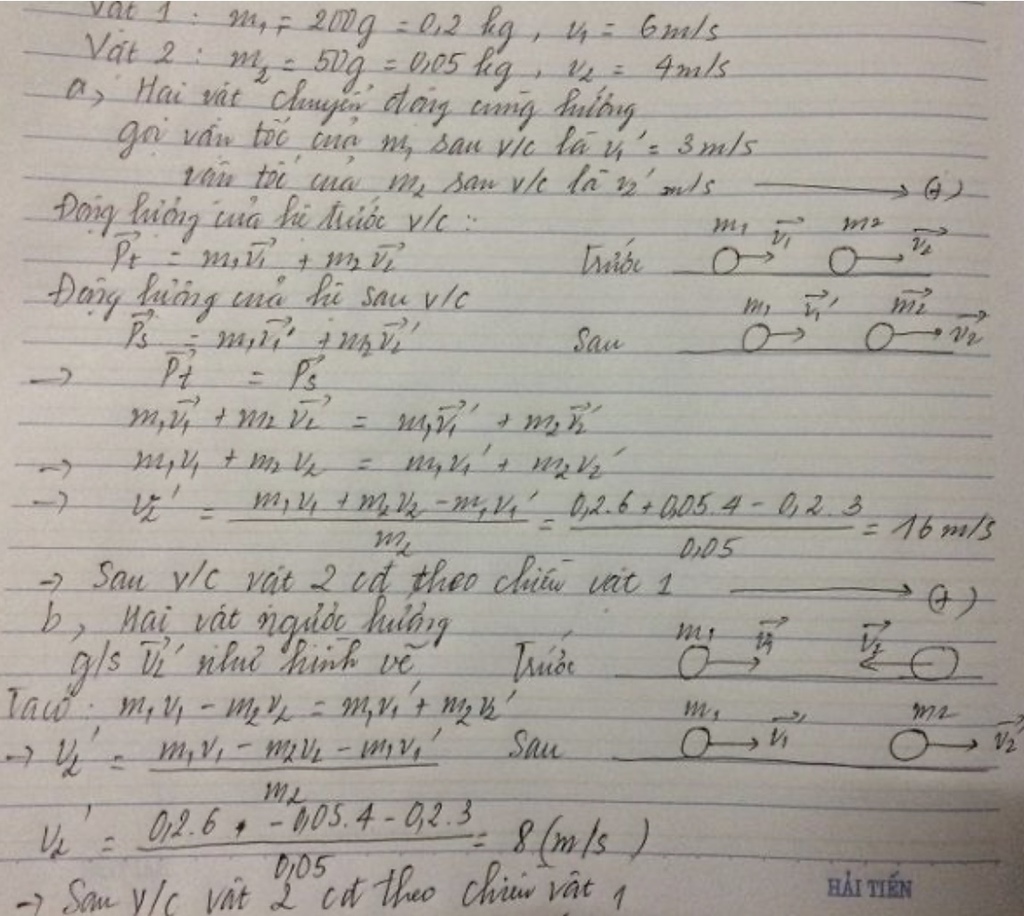 Vật 1 : m₁ = 200g = 0,2 kg , v₁ = 6m/s
Vật 2 : m₂ = 50g = 0,05 kg , v₂ = 4m/s
a, Hai vật chuyển động cùng hướng
gọi vận tốc của m₁ sau v/c là v₁' = 3m/s
vận tốc của m₂ sau v/c là v₂' m/s (+)
Động lượng của hệ trước v/c :
P⃗t = m₁v⃗₁ + m₂v⃗₂ Trước m₁ v⃗₁ m₂ v⃗₂
Động lượng của hệ sau v/c
P⃗s = m₁v⃗₁' + m₂v⃗₂' Sau m₁ v⃗₁' m⃗₂ v⃗₂
→ P⃗t = P⃗s
m₁v⃗₁ + m₂v⃗₂ = m₁v⃗₁' + m₂v⃗₂'
→ m₁v₁ + m₂v₂ = m₁v₁' + m₂v₂'
→ v₂' = (m₁v₁ + m₂v₂ - m₁v₁')/m₂ = (0,2.6 + 0,05.4 - 0,2.3)/0,05 = 16m/s
→ Sau v/c vật 2 cđ theo chiều vật 1 (+)
b, Hai vật ngược hướng
g/s v⃗₂' như hình vẽ Trước m₁ v⃗₁ v⃗₂
Ta có : m₁v₁ - m₂v₂ = m₁v₁' + m₂v₂'
→ v₂' = (m₁v₁ - m₂v₂ - m₁v₁')/m₂ Sau m₁ v⃗₁' m₂ v⃗₂'
v₂' = (0,2.6 - 0,05.4 - 0,2.3)/0,05 = 8 (m/s)
→ Sau v/c vật 2 cđ theo chiều vật 1
HẢI TIẾN